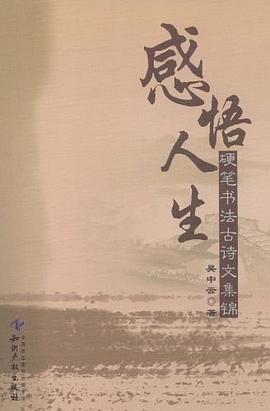 感悟人生
硬笔书法古诗文集锦
吴中云 著
知识产权出版社